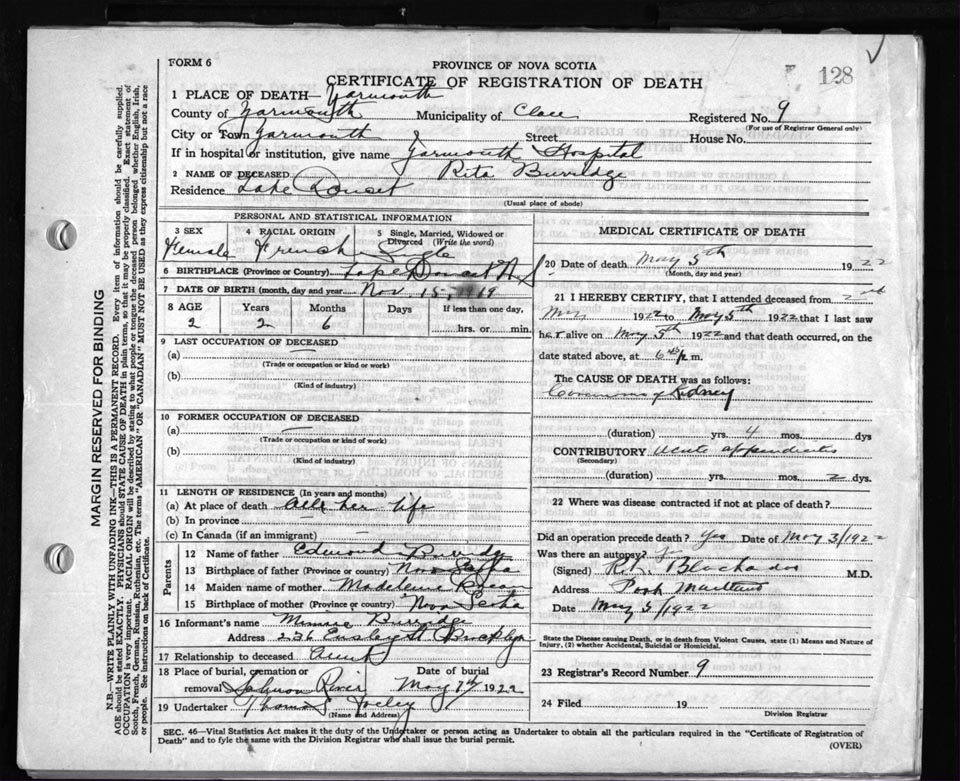 FORM 6
PROVINCE OF NOVA SCOTIA
128
CERTIFICATE OF REGISTRATION OF DEATH
1 PLACE OF DEATH— Yarmouth
County of Yarmouth Municipality of Clare Registered No. 9
(For use of Registrar General only)
City or Town Yarmouth Street House No.
If in hospital or institution, give name Yarmouth Hospital
2 NAME OF DECEASED Rita Burridge
Residence Lake Doucet
(Usual place of abode)
PERSONAL AND STATISTICAL INFORMATION
3 SEX 4 RACIAL ORIGIN 5 Single, Married, Widowed or Divorced (Write the word)
Female French Single
6 BIRTHPLACE (Province or Country) Lake Doucet N S
7 DATE OF BIRTH (month, day and year) Nov. 15, 1919
8 AGE Years Months Days If less than one day,
2 2 6 hrs. or min.
9 LAST OCCUPATION OF DECEASED
(a)
(Trade or occupation or kind or work)
(b)
(Kind of industry)
10 FORMER OCCUPATION OF DECEASED
(a)
(Trade or occupation or kind of work)
(b)
(Kind of industry)
11 LENGTH OF RESIDENCE (In years and months)
(a) At place of death All her life
(b) In province
(c) In Canada (if an immigrant)
Parents
12 Name of father Edmond Burridge
13 Birthplace of father (Province or country) Nova Scotia
14 Maiden name of mother Madeleine
15 Birthplace of mother (Province or country) Nova Scotia
16 Informant's name Minnie Burridge
Address 236 St Brooklyn
17 Relationship to deceased Aunt
18 Place of burial, cremation or removal Salmon River
Date of burial May 7th 1922
19 Undertaker Thomas
(Name and Address)
MEDICAL CERTIFICATE OF DEATH
20 Date of death May 5th 1922
(Month, day and year)
21 I HEREBY CERTIFY, that I attended deceased from 2nd
May 1922 to May 5th 1922 that I last saw
her alive on May 5th 1922 and that death occurred, on the
date stated above, at 6 p.m.
The CAUSE OF DEATH was as follows:
of Kidney
(duration) yrs. 4 mos. dys
CONTRIBUTORY Acute appendicitis
(Secondary)
(duration) yrs. mos. 2 dys
22 Where was disease contracted if not at place of death?
Did an operation precede death? Yes Date of May 3/1922
Was there an autopsy?
(Signed) M.D.
Address Port Maitland
Date May 5/1922
State the Disease causing Death, or in death from Violent Causes, state (1) Means and Nature of
Injury, (2) whether Accidental, Suicidal or Homicidal.
23 Registrar's Record Number 9
24 Filed 19
Division Registrar
SEC. 46—Vital Statistics Act makes it the duty of the Undertaker or person acting as Undertaker to obtain all the particulars required in the "Certificate of Registration of
Death" and to fyle the same with the Division Registrar who shall issue the burial permit.
(OVER)
MARGIN RESERVED FOR BINDING
N.B.—WRITE PLAINLY WITH UNFADING INK—THIS IS A PERMANENT RECORD. Every item of information should be carefully supplied.
AGE should be stated EXACTLY. PHYSICIANS should STATE CAUSE OF DEATH in plain terms, so that it may be properly classified. Exact statement of
OCCUPATION is very important. RACIAL ORIGIN will be described by stating to what people or tongue the deceased person belonged whether English, Irish,
Scotch, French, German, Russian, Ruthenian, etc. The terms "AMERICAN" OR "CANADIAN" MUST NOT BE USED as they express citizenship but not a race
or people. See instructions on back of Certificate.